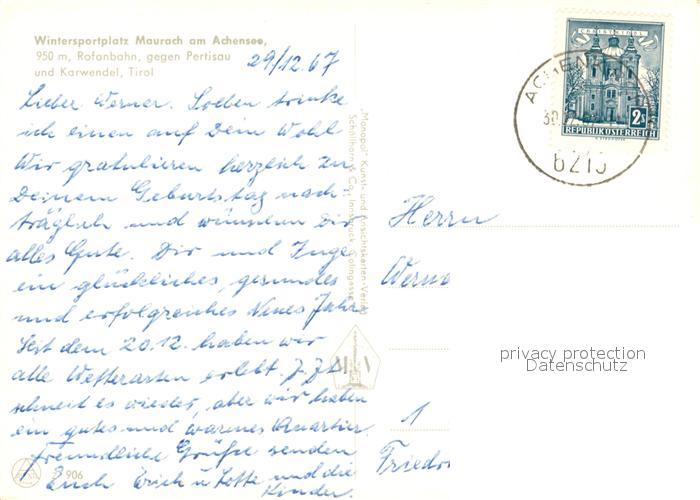 Wintersportplatz Maurach am Achensee,
950 m, Rofanbahn, gegen Pertisau
und Karwendel, Tirol
29/12.67
Lieber Werner. Soeben trinke
ich einen auf Dein Wohl
Wir gratulieren herzlich zu
Deinem Geburtstag nach-
träglich und wünschen Dir
alles Gute. Dir und Inge
ein glückliches, gesundes
und erfolgreiches Neues Jahr
Seit dem 20.12. haben wir
alle Wetterarten erlebt. Z.Zt.
schneit es wieder, aber wir haben
ein gutes und warmes Quartier.
Freundliche Grüße senden
Euch Erich u. Lotte und die
Kinder.
906
"Monopol" Kunst- und Ansichtskarten-Verlag
Schöllhorn & Co., Innsbruck,
CHRISTKINDL
2 S
REPUBLIK ÖSTERREICH
6215
Herrn
Werne
1
Friedr
privacy protection
Datenschutz